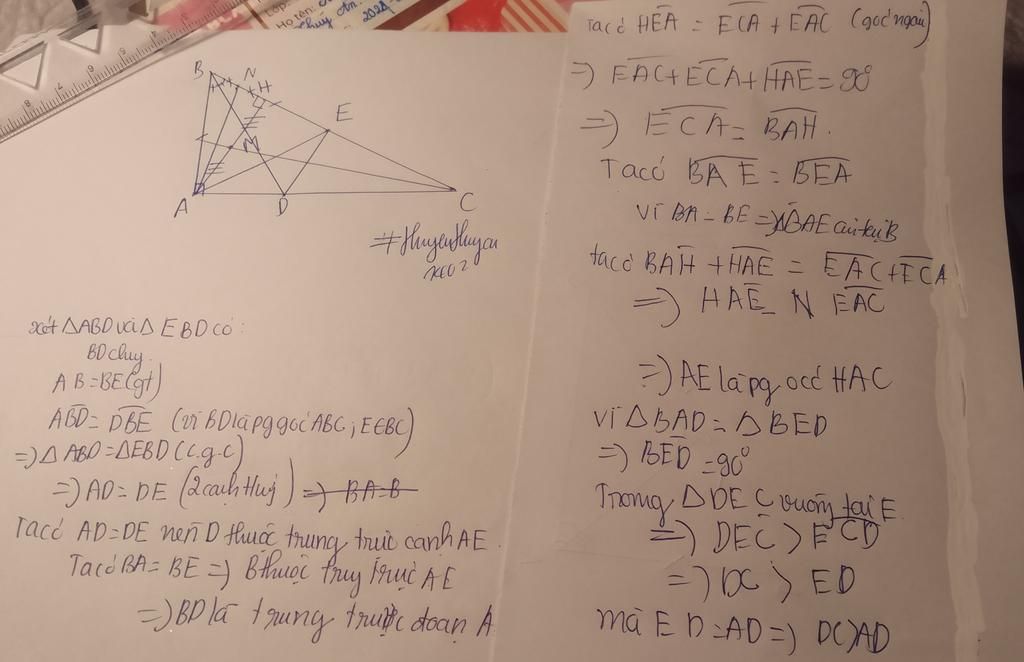 Họ tên:
2024
B
N
H
E
M
A
D
C
#thuyenthuyen
xét △ABD và △EBD có:
BD chug.
AB=BE(gt)
ABD = DBE (vì BD là pg góc ABC; E∈BC)
=> △ABD=△EBD (c.g.c)
=> AD=DE (2 cạnh tưg) => BA=B
Ta có AD=DE nên D thuộc trung trực cạnh AE.
Ta có BA=BE => B thuộc trug trực AE
=> BD là trung trực đoạn A
Ta có HEA = ECA + EAC (góc ngoài)
=> EAC+ECA+HAE=90°
=> ECA = BAH.
Ta có BAE = BEA
vì BA=BE => △BAE cân tại B
ta có BAH + HAE = EAC+ECA
=> HAE N EAC
=> AE là pg ócc HAC
Vì △BAD = △BED
=> BED =90°
Trong △DEC vuông tại E
=> DEC > ECD
=> DC > ED
mà ED=AD => DC>AD